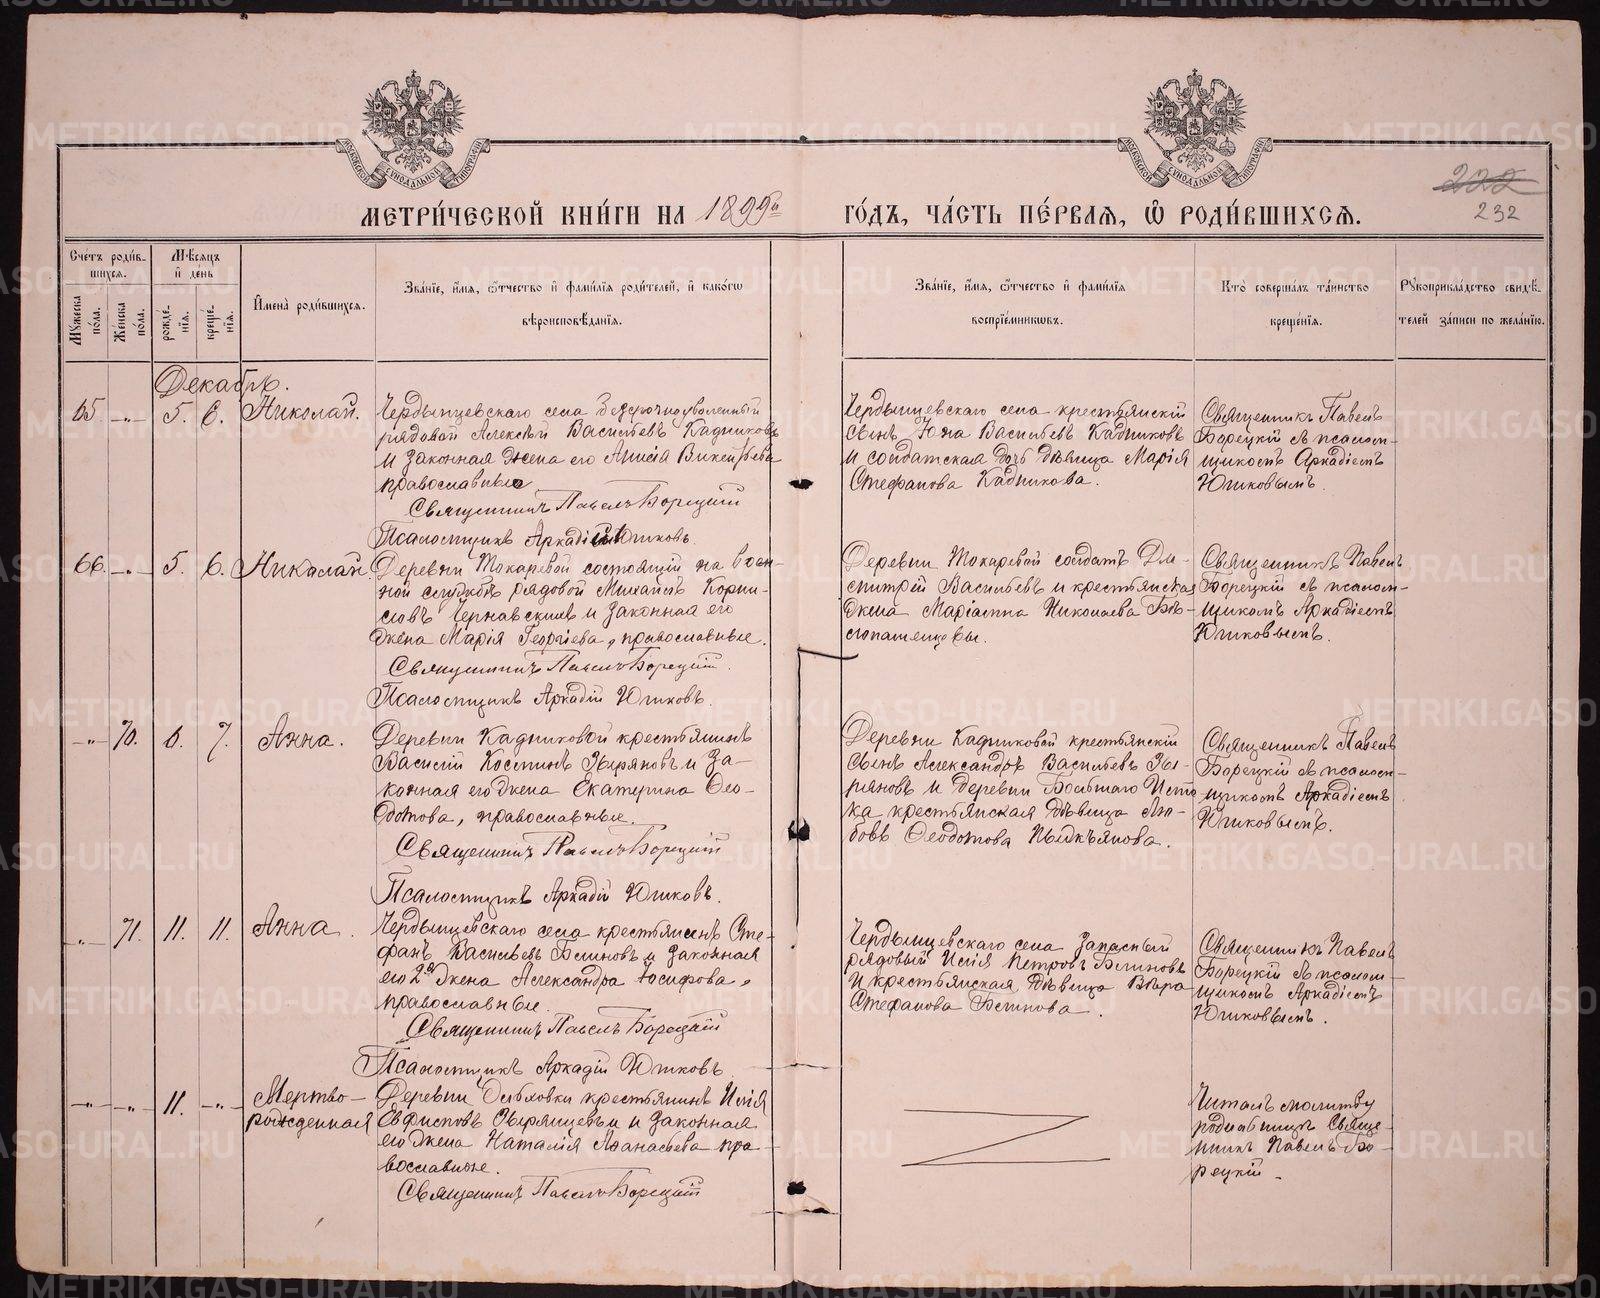 МЕТРИ́ЧЕСКОЙ КНИ́ГИ НА 1899й ГО́ДЪ, ЧА́СТЬ ПЕ́РВАЯ, Ѡ РОДИ́ВШИХСЯ.
222
232
МОСКОВСКОЙ СѴНОДАЛЬНОЙ ТИПОГРАФІИ
МОСКОВСКОЙ СѴНОДАЛЬНОЙ ТИПОГРАФІИ
Сче́тъ роди́в-
шихся.
Му́жеска по́ла.
Же́нска по́ла.
Мѣ́сяцъ
и де́нь
рожде́-
нія.
креще́-
нія.
Имена̀ роди́вшихся.
Зва́ніе, и́мя, ѻ́тчество и фами́лія роди́телей, и како́гѡ
вѣроисповѣ́данія.
Зва́ніе, и́мя, ѻ́тчество и фами́лія
воспріе́мникѡвъ.
Кто̀ соверша́лъ та́инство
креще́нія.
Рꙋкоприкла́дство свидѣ́-
телей за́писи по жела́нію.
Декабрь.
65 -„- 5. 6. Николай.
Чердынцевскаго села безсрочноуволенный
рядовой Алексѣй Васильевъ Кадниковъ
и законная жена его Анисія Викентьева
православные
Священникъ Павелъ Борецкій
Псаломщикъ Аркадій Юшковъ.
Чердынцевскаго села крестьянскій
сынъ Іона Васильевъ Кадниковъ
и солдатская дочь дѣвица Марія
Стефанова Кадникова.
Священникъ Павелъ
Борецкій съ псалом-
щикомъ Аркадіемъ
Юшковымъ.
66. -„- 5. 6. Николай.
Деревни Токаревой состоящій на воен-
ной службѣ рядовой Михаилъ Корни-
ловъ Чернавскихъ и законная его
жена Марія Георгіева, православные.
Священникъ Павелъ Борецкій.
Псаломщикъ Аркадій Юшковъ.
Деревни Токаревой солдатъ Ди-
митрій Васильевъ и крестьянская
жена Маріанна Николаева Бѣ-
Священникъ Павелъ
Борецкій съ псалом-
щикомъ Аркадіемъ
Юшковымъ.
-„- 70. 6. 7. Анна.
Деревни Кадниковой крестьянинъ
Василій Косминъ Зыряновъ и за-
конная его жена Екатерина Ѳео-
дотова, православные.
Священникъ Павелъ Борецкій
Псаломщикъ Аркадій Юшковъ.
Деревни Кадниковой крестьянскій
сынъ Александръ Васильевъ Зы-
ряновъ и деревни Большаго Исто
ка крестьянская дѣвица Лю-
бовь Ѳеодотова Пьянкова.
Священникъ Павелъ
Борецкій съ псалом-
щикомъ Аркадіемъ
Юшковымъ.
-„- 71. 11. 11. Анна.
Чердынцевскаго села крестьянинъ Сте-
фанъ Васильевъ Блиновъ и законная
его 2я жена Александра Іосифова,
православные.
Священникъ Павелъ Борецкій
Псаломщикъ Аркадій Юшковъ.
Чердынцевскаго села запасный
рядовый Илія Петровъ Блиновъ
и крестьянская дѣвица Вѣра
Стефанова Блинова.
Священникъ Павелъ
Борецкій съ псалом-
щикомъ Аркадіемъ
Юшковымъ.
-„- -„- 11. -„- Мертво-
рожденная
Деревни крестьянинъ Илія
его жена Наталія Аѳанасьева пра-
вославные.
Священникъ Павелъ Борецкій
Читалъ молитву
родильницѣ Свяще-
нникъ Павелъ Бо-
рецкій.
METRIKI.GASO-URAL.RU